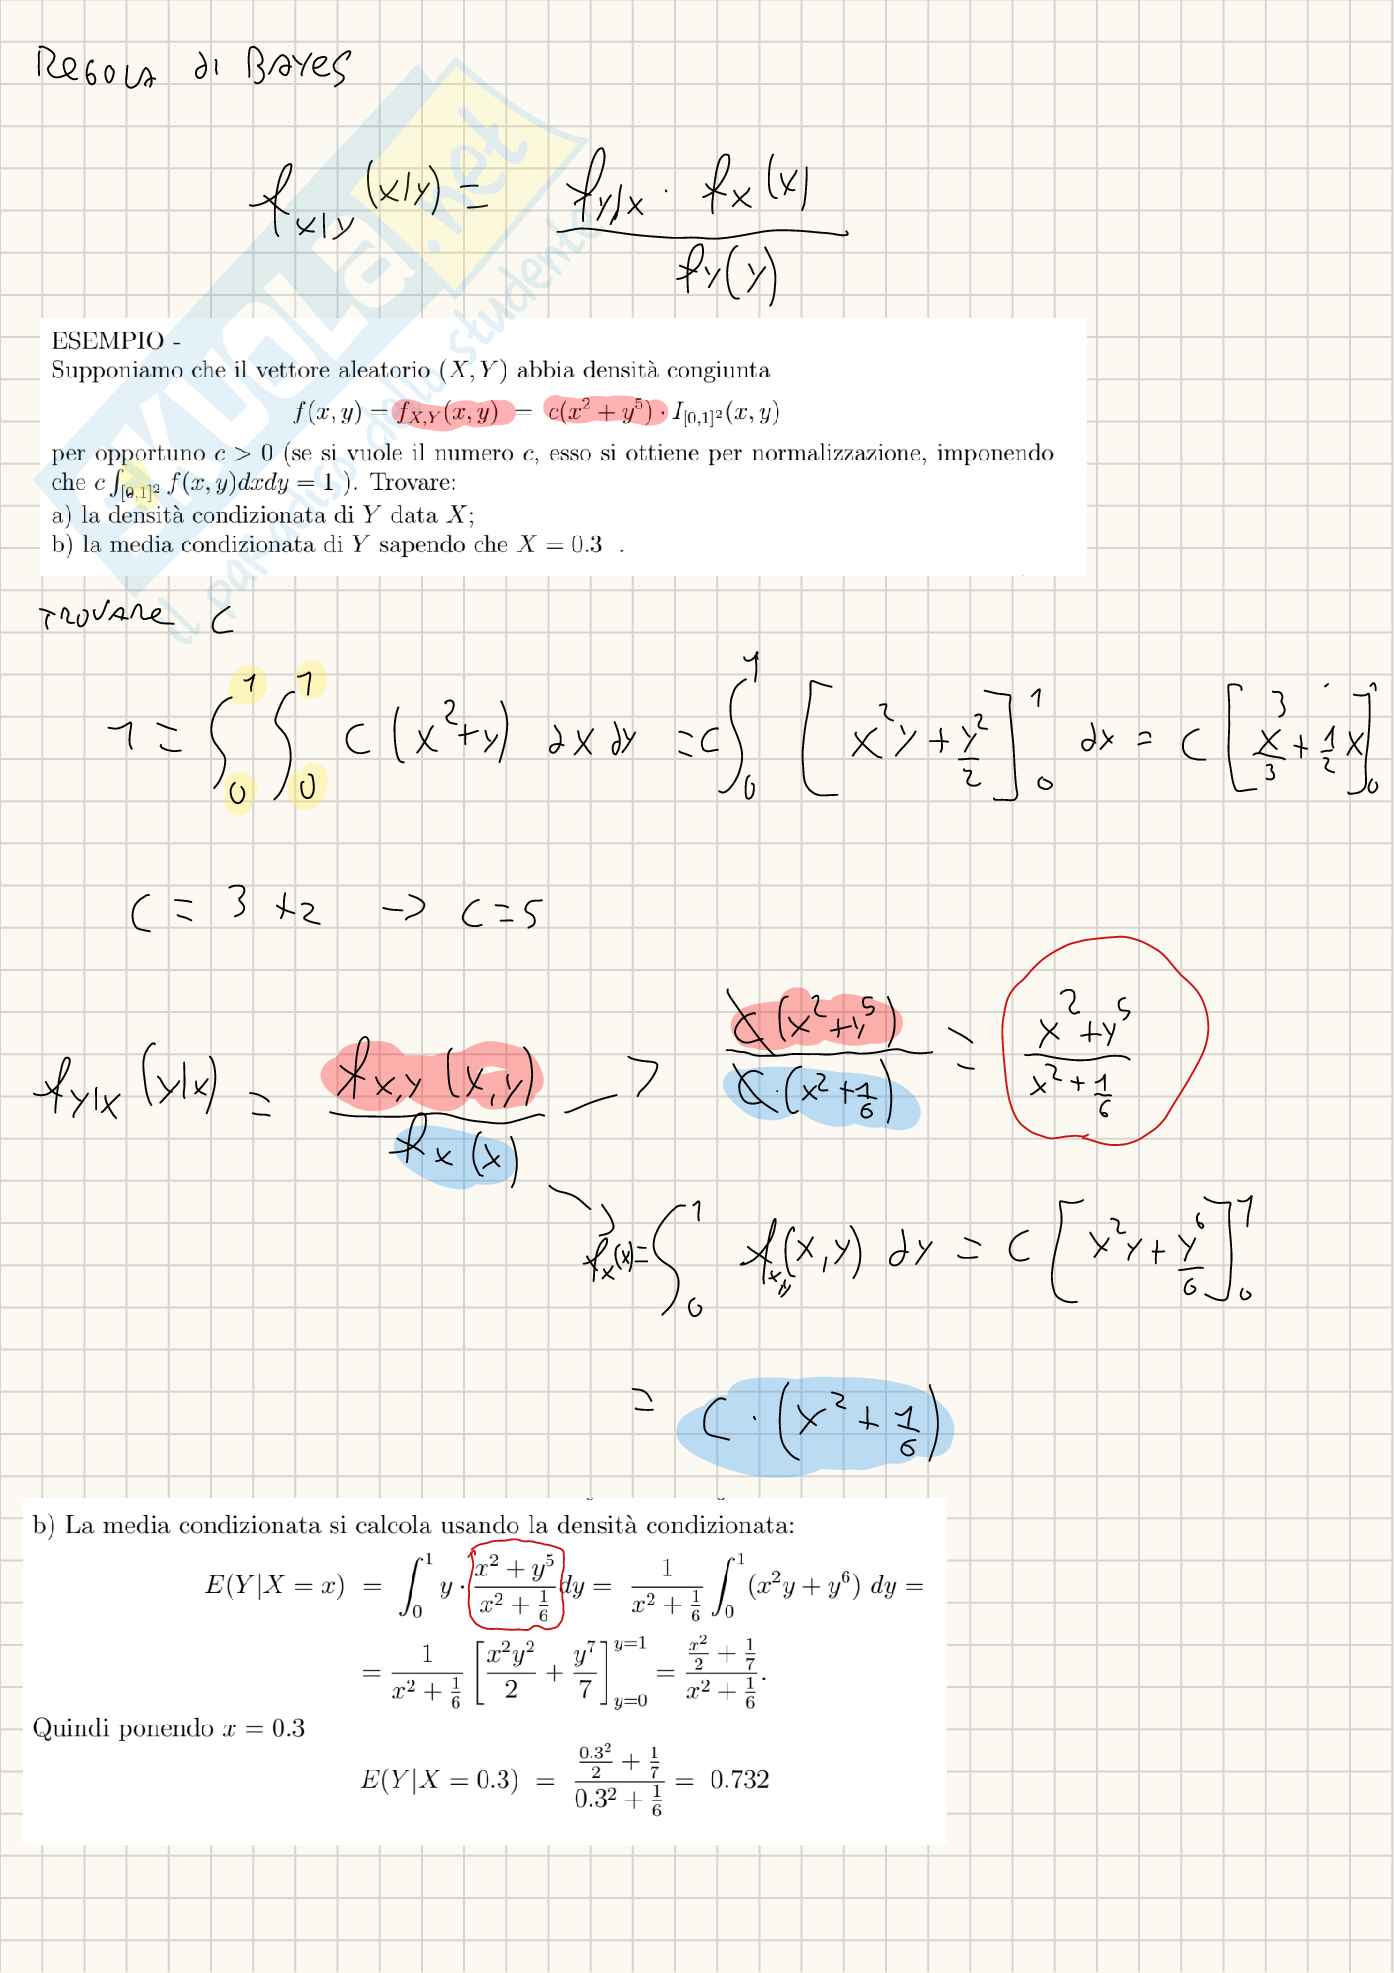 REGOLA DI BAYES
f_{X|Y}(x|y) = \frac{f_{Y|X} · f_X(x)}{f_Y(y)}
SKUOLA.net
il paradiso dello studente
ESEMPIO -
Supponiamo che il vettore aleatorio (X, Y) abbia densità congiunta
f(x, y) = f_{X,Y}(x, y) = c(x² + y⁵) · I_{[0,1]²}(x, y)
per opportuno c > 0 (se si vuole il numero c, esso si ottiene per normalizzazione, imponendo
che c ∫_{[0,1]²} f(x, y)dxdy = 1 ). Trovare:
a) la densità condizionata di Y data X;
b) la media condizionata di Y sapendo che X = 0.3 .
TROVARE C
1 = ∫_0^1 ∫_0^1 C (x² + y) dx dy = C ∫_0^1 [x²y + \frac{y²}{2}]_0^1 dx = C [\frac{x³}{3} + \frac{1}{2} x]_0^1
C = 3 + 2 -> C = 5
f_{Y|X}(y|x) = \frac{f_{X,Y}(x,y)}{f_X(x)} -> \frac{C (x² + y⁵)}{C · (x² + \frac{1}{6})} = \frac{x² + y⁵}{x² + \frac{1}{6}}
f_X(x) = ∫_0^1 f_{XY}(x,y) dy = C [x²y + \frac{y⁶}{6}]_0^1
= C · (x² + \frac{1}{6})
b) La media condizionata si calcola usando la densità condizionata:
E(Y|X = x) = ∫_0^1 y · \frac{x² + y⁵}{x² + \frac{1}{6}} dy = \frac{1}{x² + \frac{1}{6}} ∫_0^1 (x²y + y⁶) dy =
= \frac{1}{x² + \frac{1}{6}} [\frac{x²y²}{2} + \frac{y⁷}{7}]_{y=0}^{y=1} = \frac{\frac{x²}{2} + \frac{1}{7}}{x² + \frac{1}{6}}.
Quindi ponendo x = 0.3
E(Y|X = 0.3) = \frac{\frac{0.3²}{2} + \frac{1}{7}}{0.3² + \frac{1}{6}} = 0.732